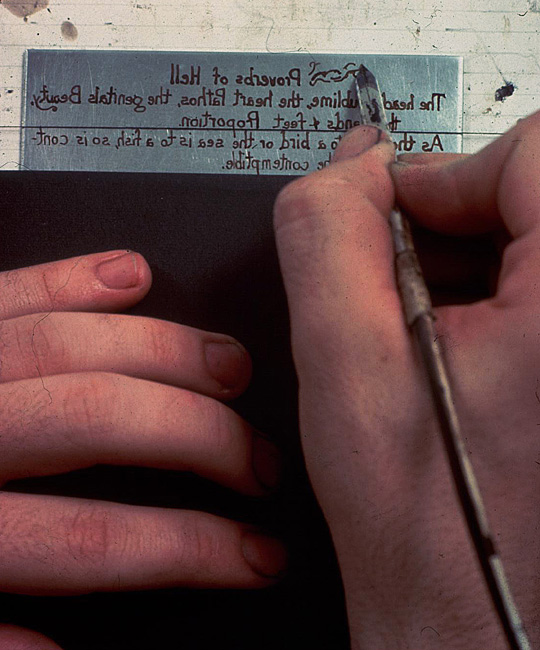 Proverbs of Hell
The head Sublime, the heart Pathos, the genitals Beauty,
& feet Proportion.
As the to a bird or the sea is to a fish, so is cont-
contemptible.